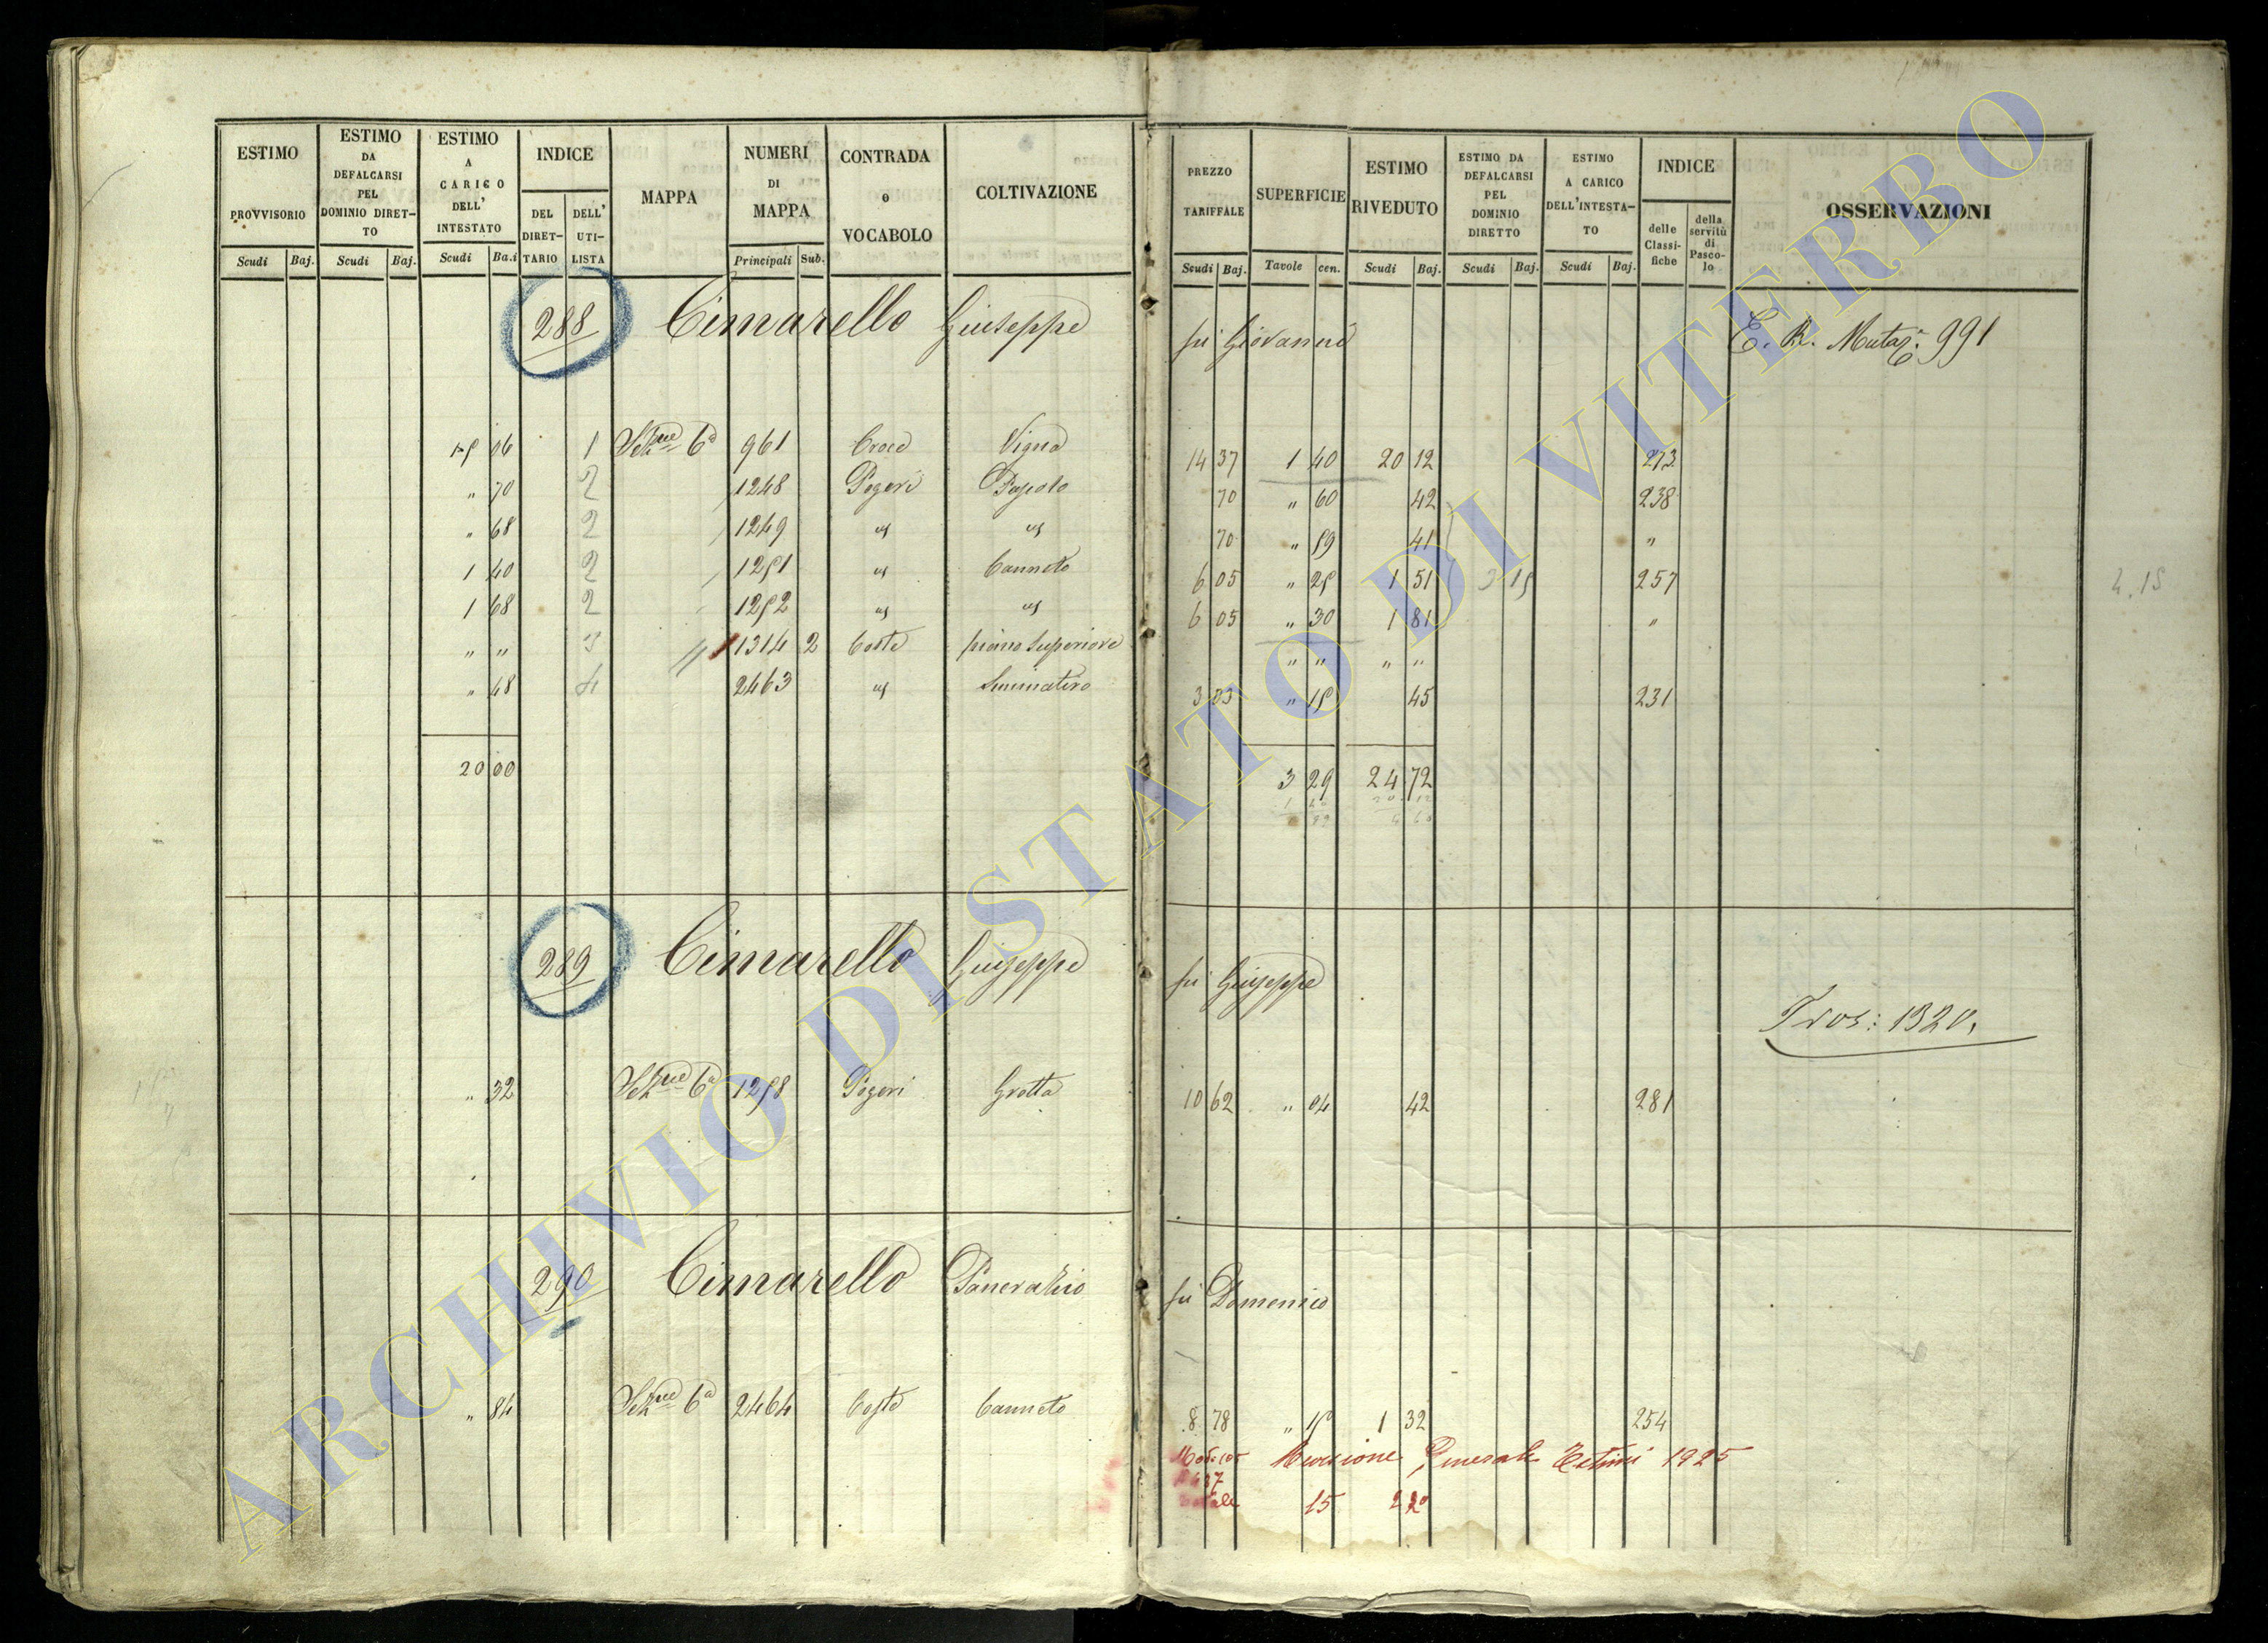 ESTIMO PROVVISORIO
Scudi Baj.
ESTIMO DA DEFALCARSI PEL DOMINIO DIRET-TO
Scudi Baj.
ESTIMO A CARICO DELL' INTESTATO
Scudi Ba.i
INDICE
DEL DIRET-TARIO
DELL' UTI-LISTA
MAPPA
NUMERI DI MAPPA
Principali Sub.
CONTRADA o VOCABOLO
COLTIVAZIONE
PREZZO TARIFFALE
Scudi Baj.
SUPERFICIE
Tavole cen.
ESTIMO RIVEDUTO
Scudi Baj.
ESTIMO DA DEFALCARSI PEL DOMINIO DIRETTO
Scudi Baj.
ESTIMO A CARICO DELL'INTESTA-TO
Scudi Baj.
INDICE
delle Classi-fiche
della servitù di Pasco-lo
OSSERVAZIONI
288 Cimarello Giuseppe fu Giovanni
991
1 6ª 961 Croce Vigna 14 37 1 40 20 12 213
" 70 2 1248 Pogeri 70 " 60 42 238
" 68 2 1249 70 " 59 41 "
1 40 2 1251 Canneto 6 05 " 25 1 51 257
1 68 2 1252 6 05 " 30 1 81 "
" " 3 1314 2 Coste piano Superiore " " " "
" 48 4 2463 Seminativo 3 03 " 15 45 231
20 00 3 29 24 72
289 Cimarello Giuseppe fu Giuseppe
" 32 6ª 1258 Pogeri Grotta 10 62 " 04 42 281
290 Cimarello Pancrazio fu Domenico
" 84 6ª 2464 Coste Canneto 8 78 " 15 1 32 254
Generale Estimi 1925
15 2 20
ARCHIVIO DI STATO DI VITERBO